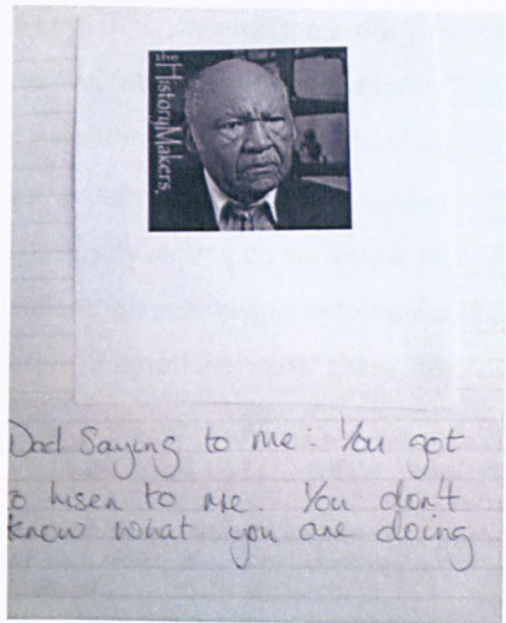 the HistoryMakers.
Dad Saying to me: You got
o lisen to me. You don't
know what you are doing